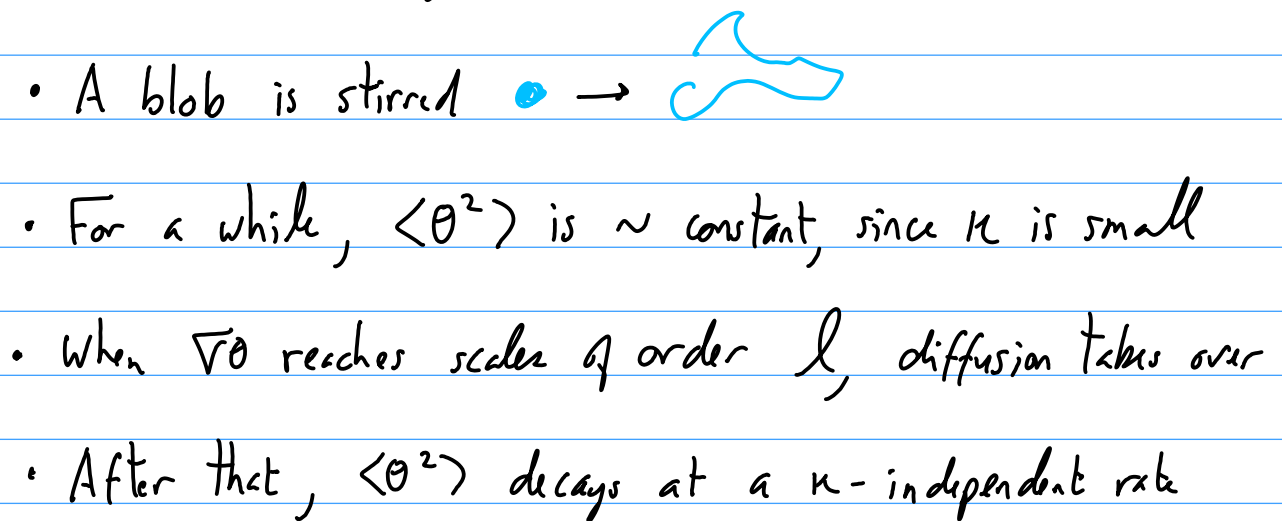 • A blob is stirred →
• For a while, <θ²> is ~ constant, since κ is small
• When ∇θ reaches scales of order l, diffusion takes over
• After that, <θ²> decays at a κ-independent rate